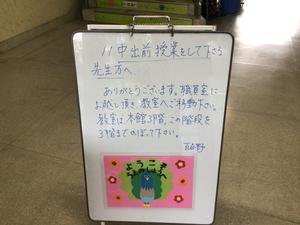 11中出前授業をして下さる
先生方へ、
ありがとうございます。職員室に
お越し頂き、教室へご移動下さい。
教室は本館3階、この階段を
3階までのぼって下さい。
ようこそ